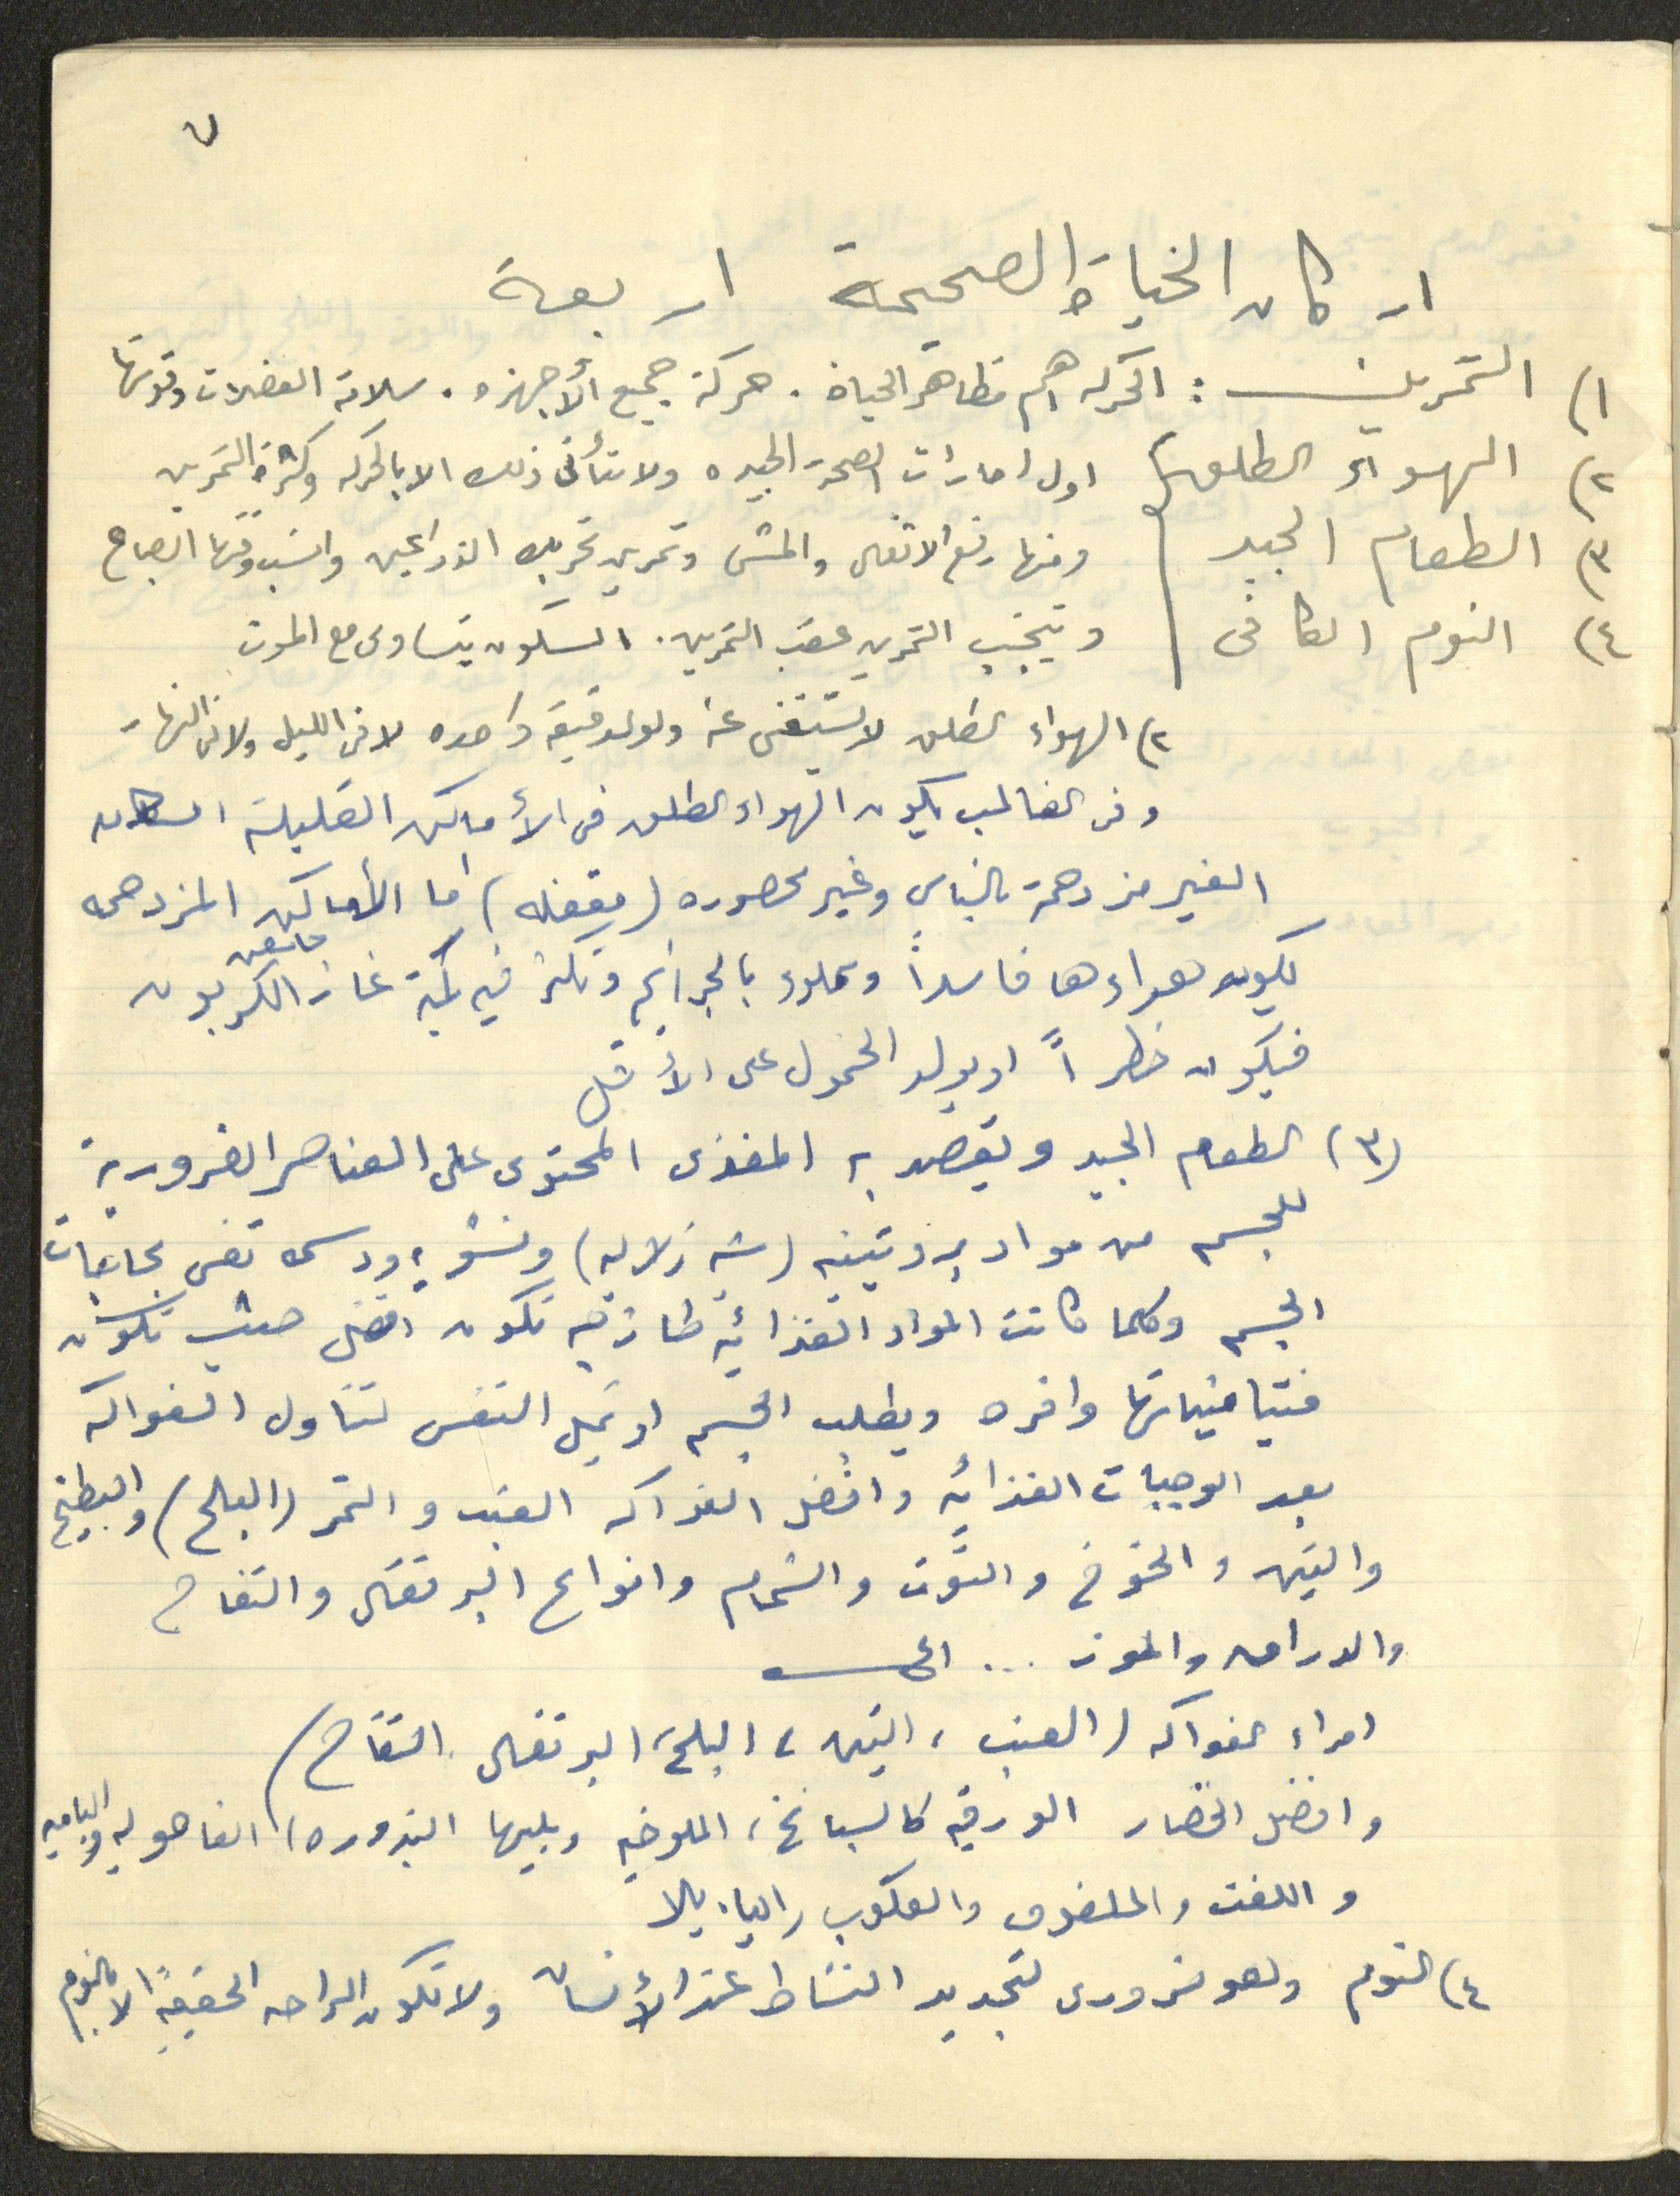 ٧
اركان الحياة الصحيحة اربعة
١) التمرين : الحركه اهم مظاهر الحياة . حركة جميع الأجهزه . سلامة العضلات وقوتها
٢) الهواء الطلق اول امارات الصحة الجيده ولا يتأتى ذلك الا بالحركه وكثرة التمرين
٣) الطعام الجيد ومنها رفع الاثقال والمشي وتمرين تحريك الذراعين وانسب وقتها الصباح
٤) النوم الكافي وتجنب التمرين عقب التمرين . السكون يتساوى مع الموت
٢) الهواء الطلق لا يستغنى عنه ولو لدقيقة واحده لا في الليل ولا في النهار
وفي الغالب يكون الهواء الطلق في الأماكن القليلة السكان
الغير مزدحمة بالناس وغير محصوره (مقفله) اما الأماكن المزدحمه
يكون هواءها فاسداً ومملوء بالجراثيم وتكثر فيه كمية غاز الكربون
فيكون خطراً او يولد الخمول على الأقل
(٣) الطعام الجيد ويقصد به المغذى المحتوى على العناصر الضرورية
للجسم من مواد بروتينيه (شه زلاليه) ونشويه ودسمه تفى بحاجات
الجسم وكلما كانت المواد الغذائيه طازجه تكون افضل حيث تكون
فيتاميناتها وافره ويطلب الجسم او تميل النفس لتناول الفواكه
بعد الوجبات الغذائيه وافضل الفواكه العنب والتمر (البلح) والبطيخ
والتين والخوخ والتوت والشمام وانواع البرتقال والتفاح
والدراق والموز ... الخ
امراء الفواكه (العنب ، التين ، البلح ، البرتقال التفاح)
وافضل الخضار الورقيه كالسبانخ ، الملوخيه ويليها البندوره ، الفاصوليه والباميه
واللفت والملفوف والعكوب والبازيلا
٤) النوم وهو ضرورى لتجديد النشاط عند الأنسان ولا تكون الراحه الحقيقية الا بالنوم